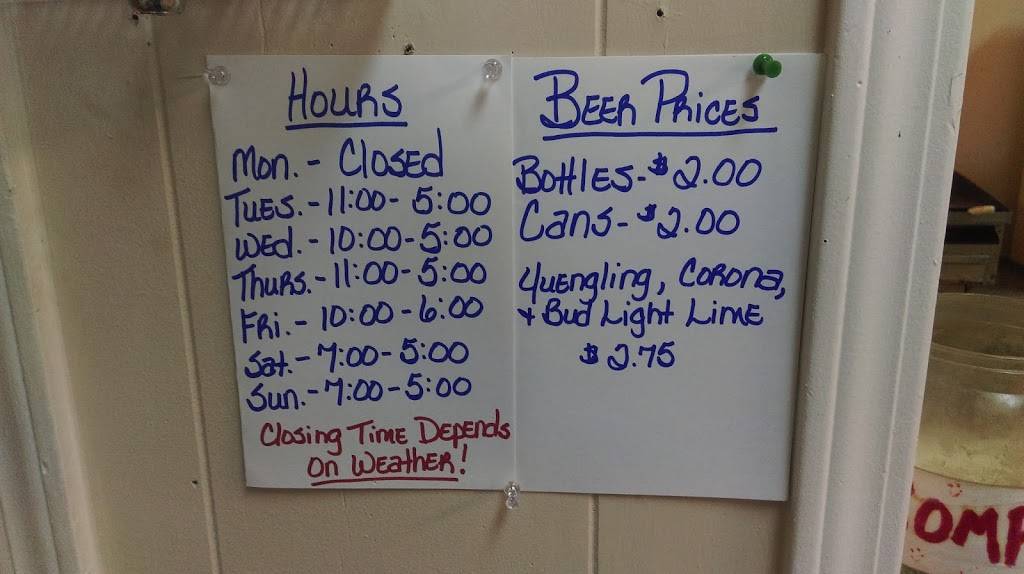 Hours
Mon. - Closed
Tues. - 11:00 - 5:00
Wed. - 10:00 - 5:00
Thurs. - 11:00 - 5:00
Fri. - 10:00 - 6:00
Sat. - 7:00 - 5:00
Sun. - 7:00 - 5:00
Closing Time Depends
on Weather!
Beer Prices
Bottles - $2.00
Cans - $2.00
Yuengling, Corona,
+ Bud Light Lime
$2.75